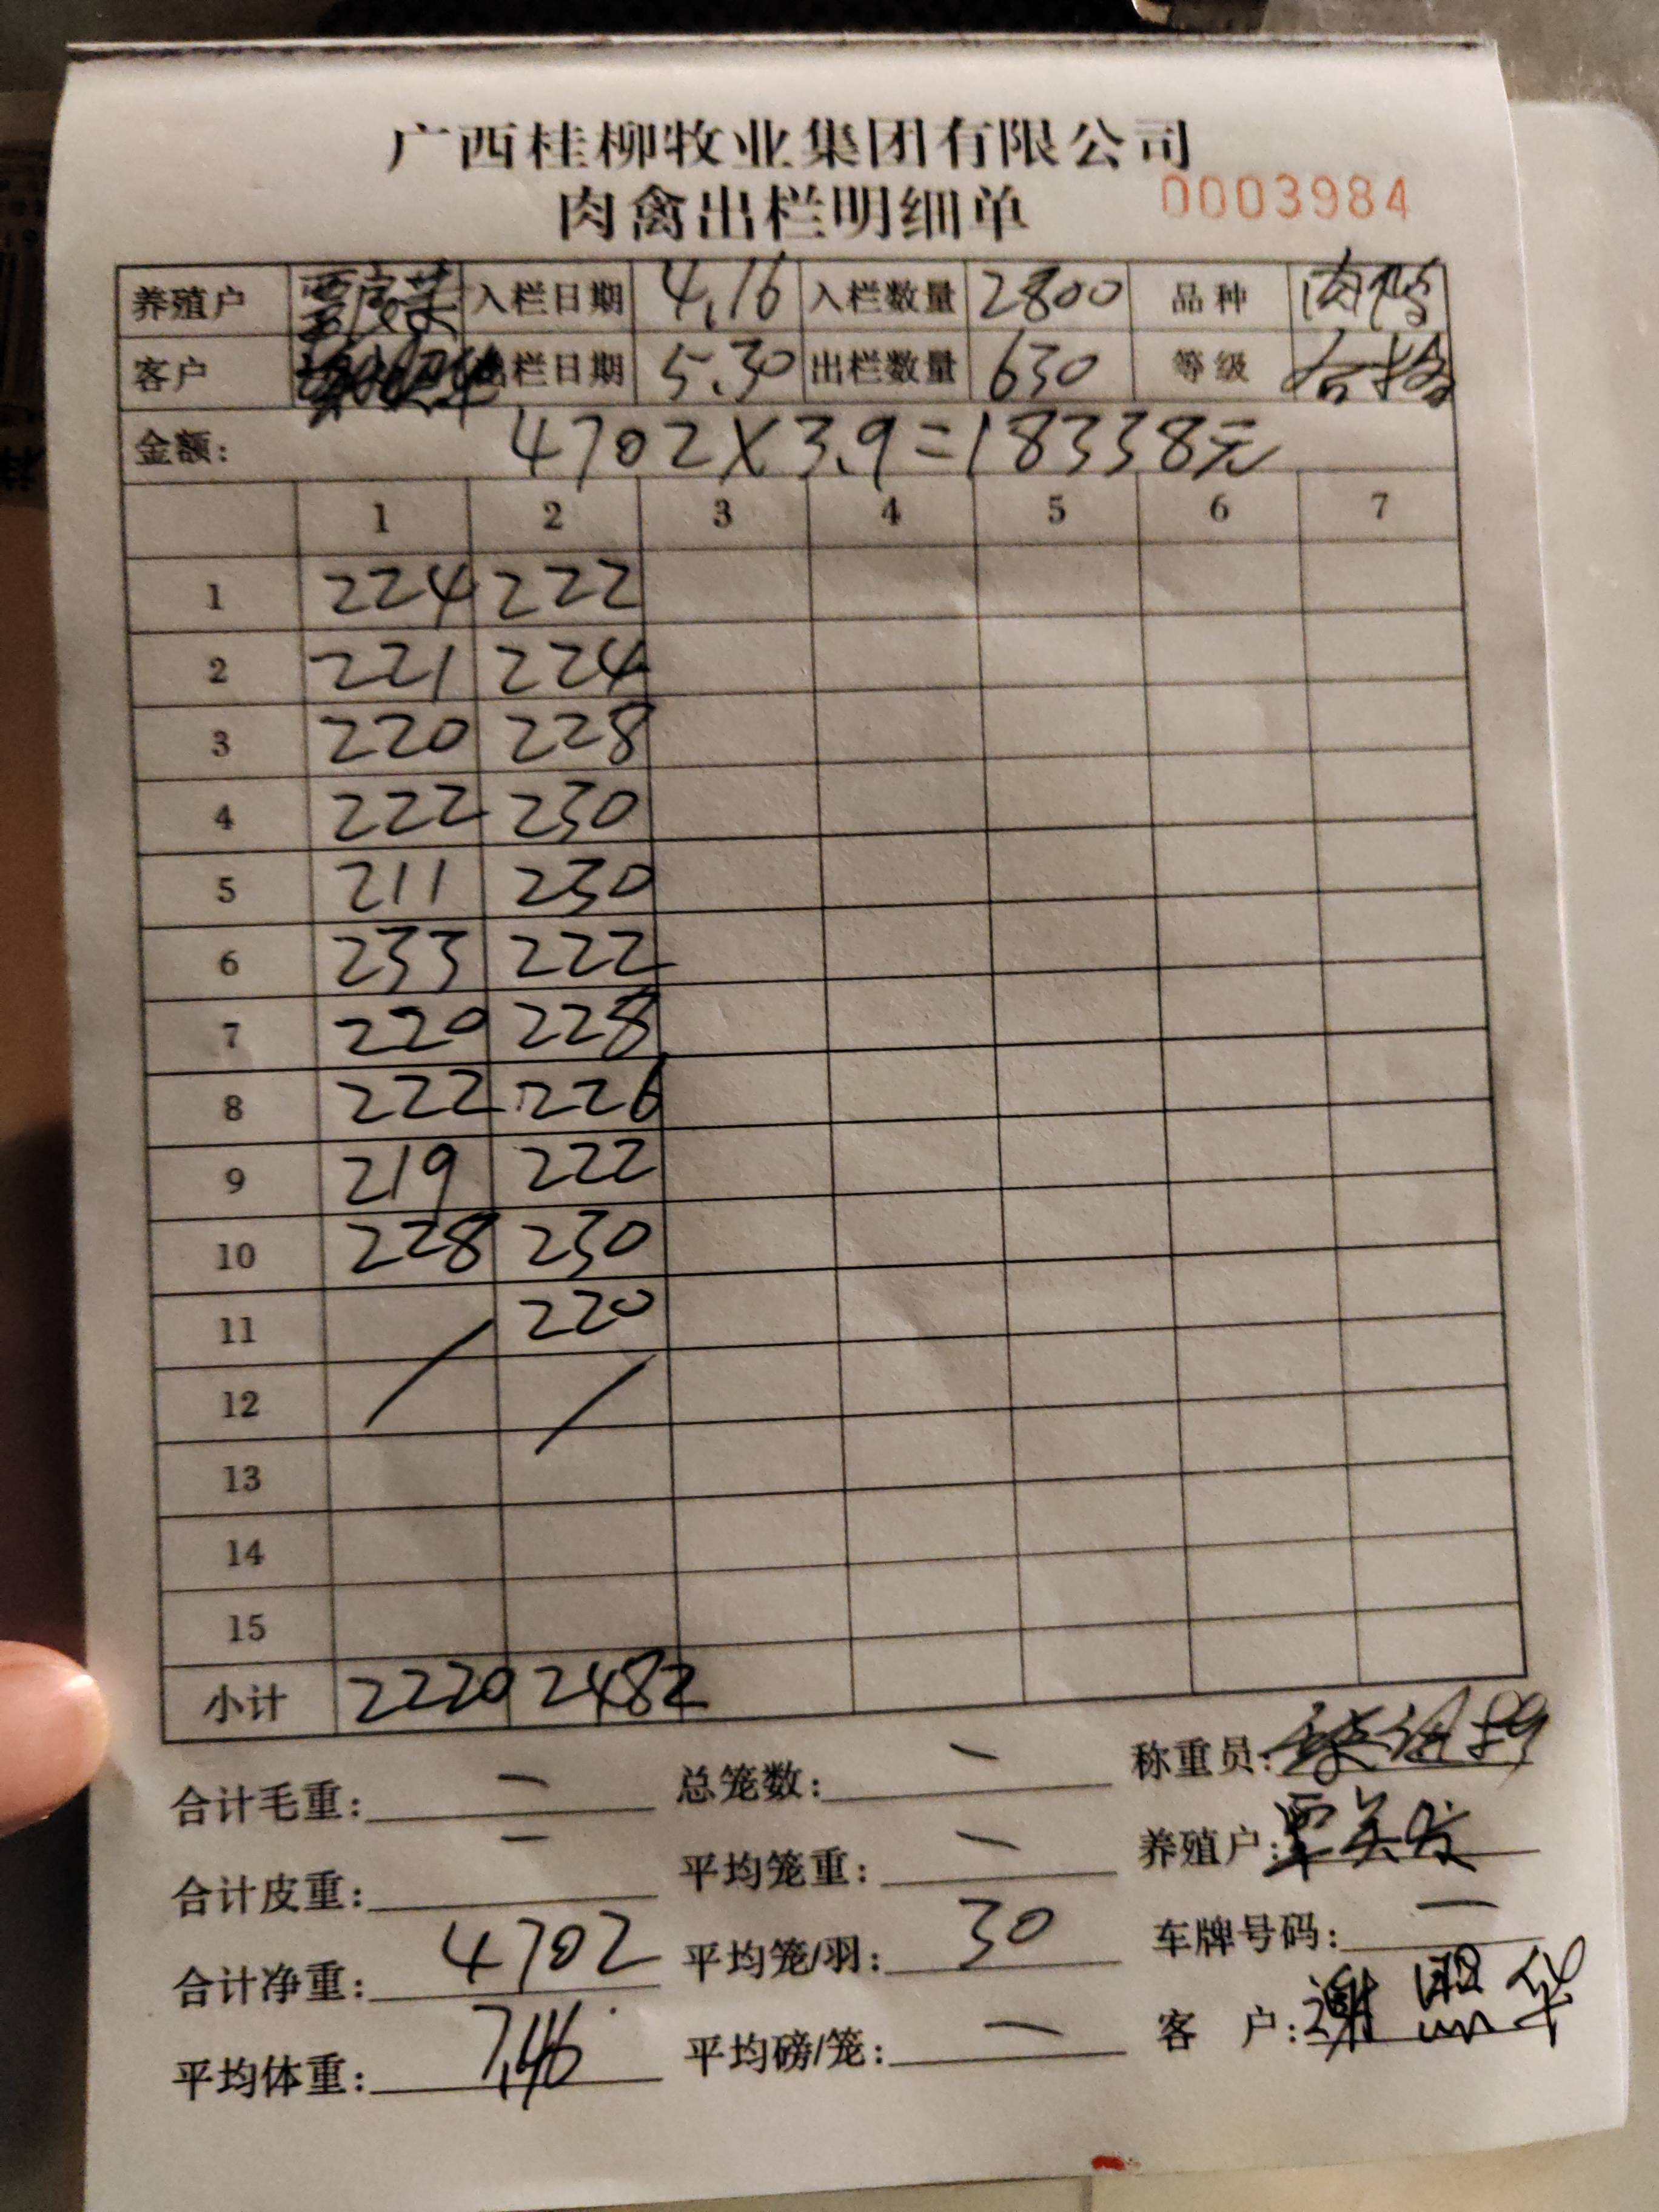 广西桂柳牧业集团有限公司
肉禽出栏明细单 0003984
养殖户 入栏日期 4.16 入栏数量 2800 品种 肉鸭
客户 出栏日期 5.30 出栏数量 630 等级 合格
金额: 4702×3.9=18338元
1 2 3 4 5 6 7
1 224 222
2 221 224
3 220 228
4 222 230
5 211 230
6 233 222
7 220 228
8 222 226
9 219 222
10 228 230
11 220
12
13
14
15
小计 2220 2482
合计毛重: — 总笼数: — 称重员:
合计皮重: — 平均笼重: — 养殖户:
合计净重: 4702 平均笼/羽: 30 车牌号码: —
平均体重: 7.46 平均磅/笼: — 客户: 谢照华